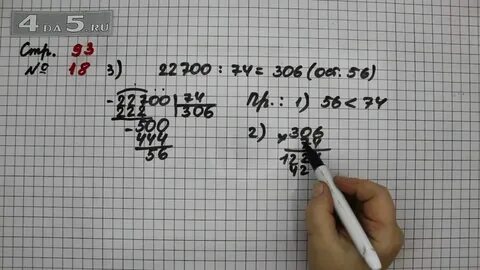 4ДА5.RU
Стр. 93
№ 18 3) 22700 : 74 = 306 (ост. 56)
- 22700 | 74
222 | 306
- 500
444
56
Пр.: 1) 56 < 74
2) × 306
74
122
42